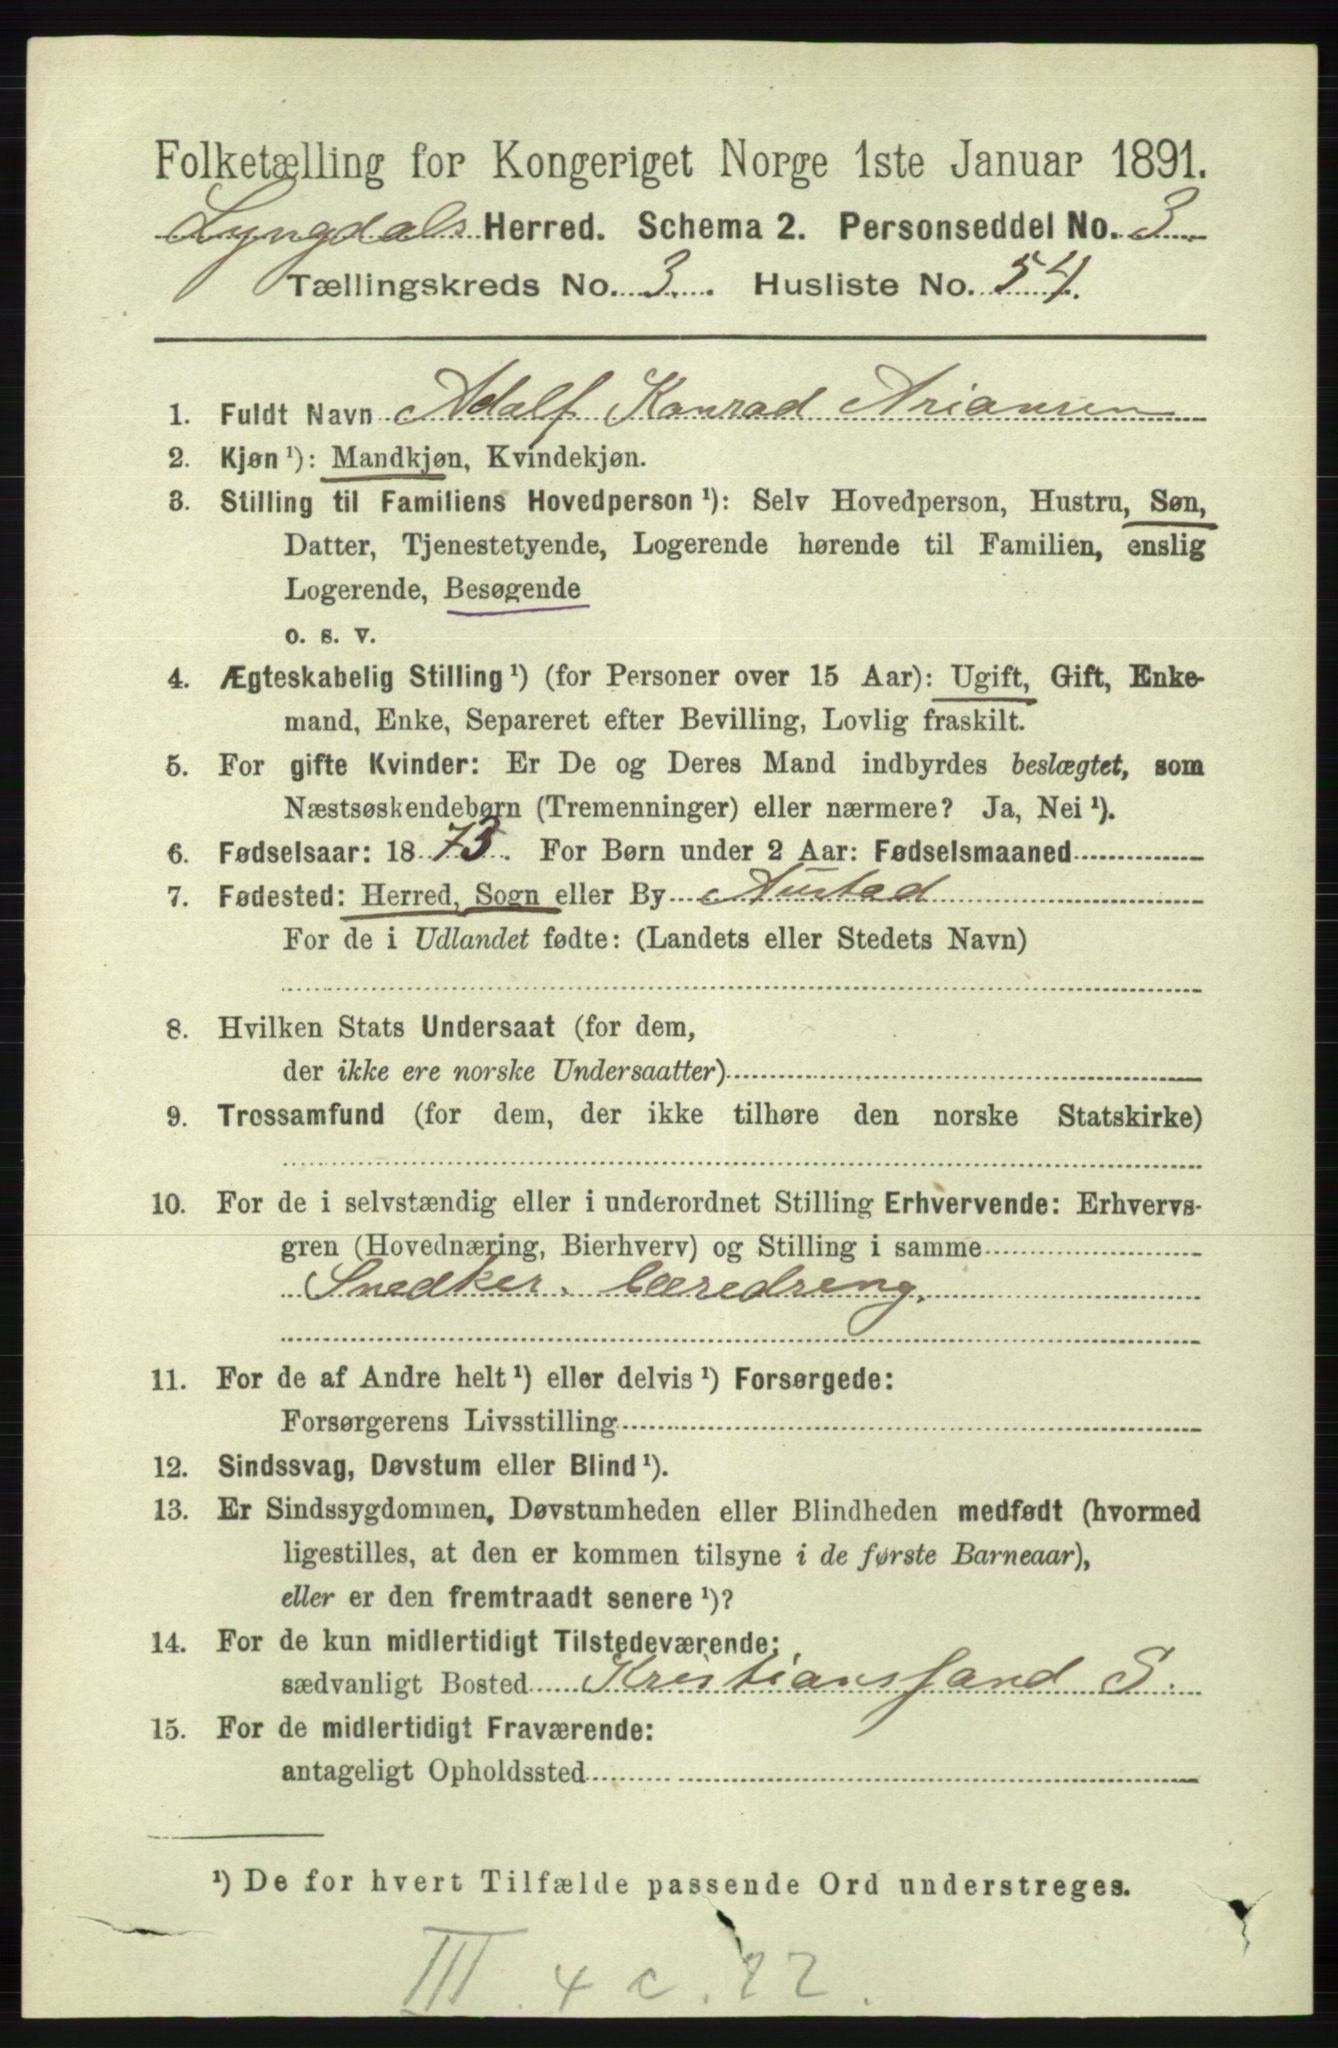 Folketælling for Kongeriget Norge 1ste Januar 1891.
Lyngdals Herred. Schema 2. Personseddel No. 3.
Tællingskreds No. 3. Husliste No. 54.
1. Fuldt Navn Adolf Konrad Ariansen
2. Kjøn ¹): Mandkjøn, Kvindekjøn.
3. Stilling til Familiens Hovedperson ¹): Selv Hovedperson, Hustru, Søn,
Datter, Tjenestetyende, Logerende hørende til Familien, enslig
Logerende, Besøgende
o. s. v.
4. Ægteskabelig Stilling ¹) (for Personer over 15 Aar): Ugift, Gift, Enke-
mand, Enke, Separeret efter Bevilling, Lovlig fraskilt.
5. For gifte Kvinder: Er De og Deres Mand indbyrdes beslægtet, som
Næstsøskendebørn (Tremenninger) eller nærmere? Ja, Nei ¹).
6. Fødselsaar: 1873. For Børn under 2 Aar: Fødselsmaaned
7. Fødested: Herred, Sogn eller By Austad
For de i Udlandet fødte: (Landets eller Stedets Navn)
8. Hvilken Stats Undersaat (for dem,
der ikke ere norske Undersaatter)
9. Trossamfund (for dem, der ikke tilhøre den norske Statskirke)
10. For de i selvstændig eller i underordnet Stilling Erhvervende: Erhvervs-
gren (Hovednæring, Bierhverv) og Stilling i samme
Snedker. læredreng.
11. For de af Andre helt ¹) eller delvis ¹) Forsørgede:
Forsørgerens Livsstilling
12. Sindssvag, Døvstum eller Blind ¹).
13. Er Sindssygdommen, Døvstumheden eller Blindheden medfødt (hvormed
ligestilles, at den er kommen tilsyne i de første Barneaar),
eller er den fremtraadt senere ¹)?
14. For de kun midlertidigt Tilstedeværende:
sædvanligt Bosted Kristianssand S.
15. For de midlertidigt Fraværende:
antageligt Opholdssted
¹) De for hvert Tilfælde passende Ord understreges.
III. 4 c. 22.